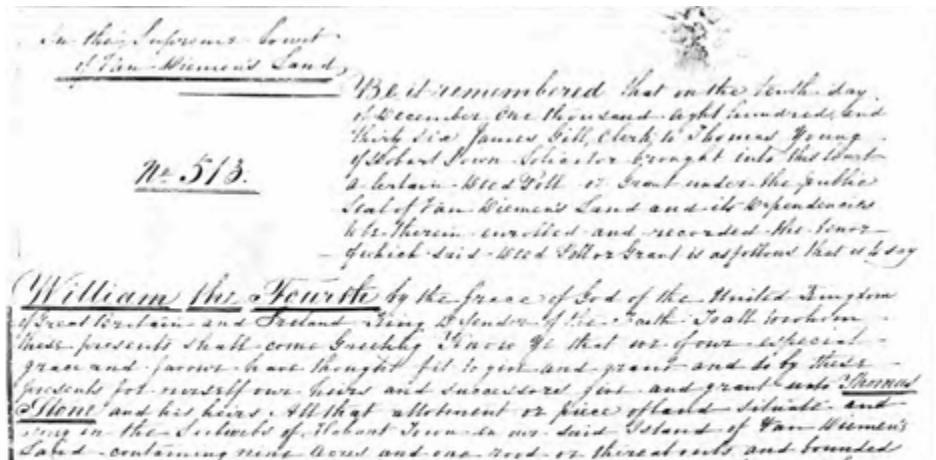 In the Supreme Court
of Van Diemen's Land
Be it remembered that on the tenth day
of December One thousand eight hundred and
thirty six James Gill, Clerk, to Thomas Young
of Hobart Town Solicitor brought into this Court
No. 513.
a Certain Deed Poll or Grant under the public
Seal of Van Diemen's Land and its Dependencies
to be therein enrolled and recorded the tenor
of which said Deed Poll or Grant is as follows that is to say
William the Fourth by the Grace of God of the United Kingdom
of Great Britain and Ireland King Defender of the Faith To all to whom
these presents shall come Greeting Know Ye that we of our especial
grace and favour have thought fit to give and grant and do by these
presents for ourself our heirs and successors give and grant unto Thomas
Stone and his heirs All that allotment or piece of land situate and
lying in the Suburbs of Hobart Town in our said Island of Van Diemen's
Land containing nine acres and one rood or thereabouts and bounded